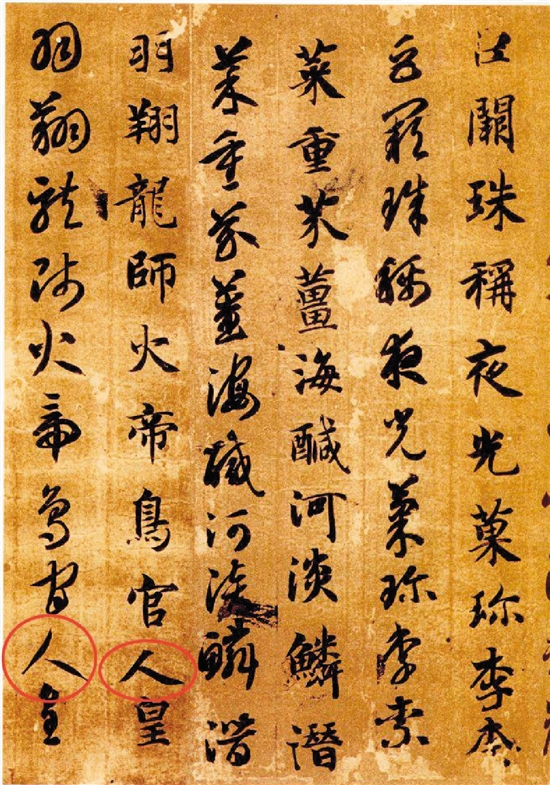 巨闕珠稱夜光菓珍李柰
巨闕珠稱夜光菓珍李柰
菜重芥薑海醎河淡鱗潛
菜重芥薑海醎河淡鱗潛
羽翔龍師火帝鳥官人皇
羽翔龍師火帝鳥官人皇